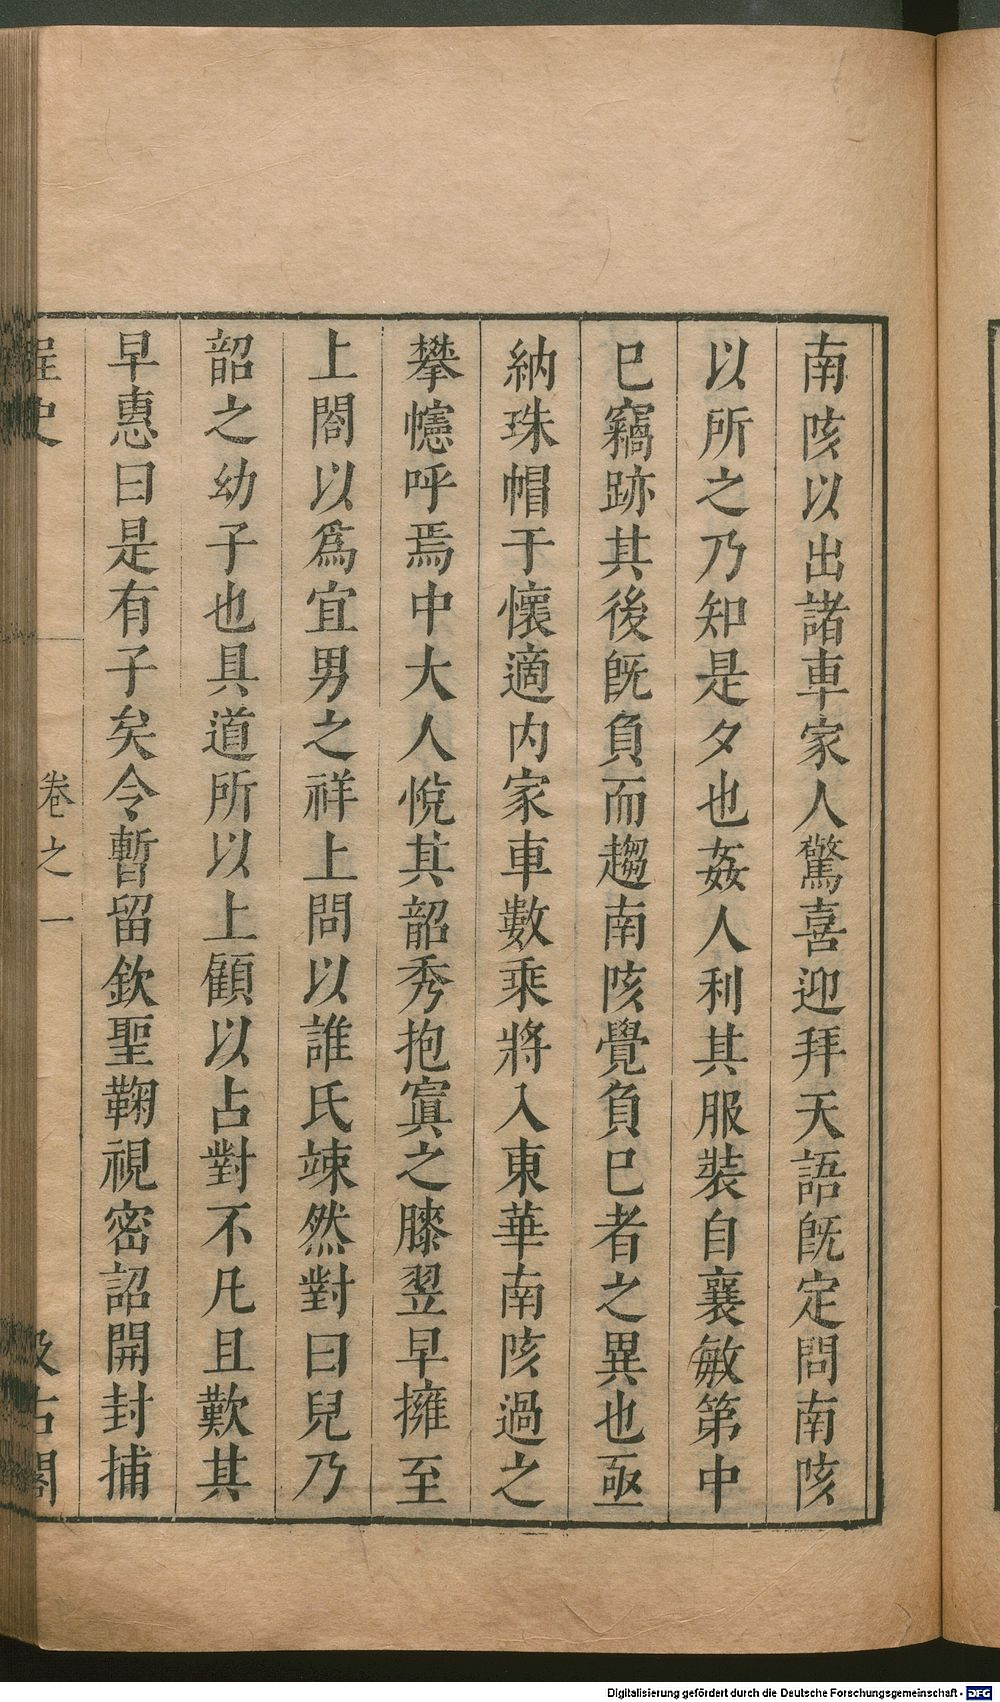 南陔以出諸車家人驚喜迎拜天語旣定問南陔
以所之乃知是夕也姦人利其服裝自襄敏第中
已竊跡其後旣負而趨南陔覺負已者之異也亟
納珠帽于懷適内家車數乘將入東華南陔過之
攀幰呼焉中大人悅其韶秀抱寘之膝翌早擁至
上閤以爲宜男之祥上問以誰氏竦然對曰兒乃
韶之幼子也具道所以上顧以占對不凡且歎其
早惠曰是有子矣令暫留欽聖鞠視密詔開封捕
桯史 卷之一 汲古閣
Digitalisierung gefördert durch die Deutsche Forschungsgemeinschaft - DFG